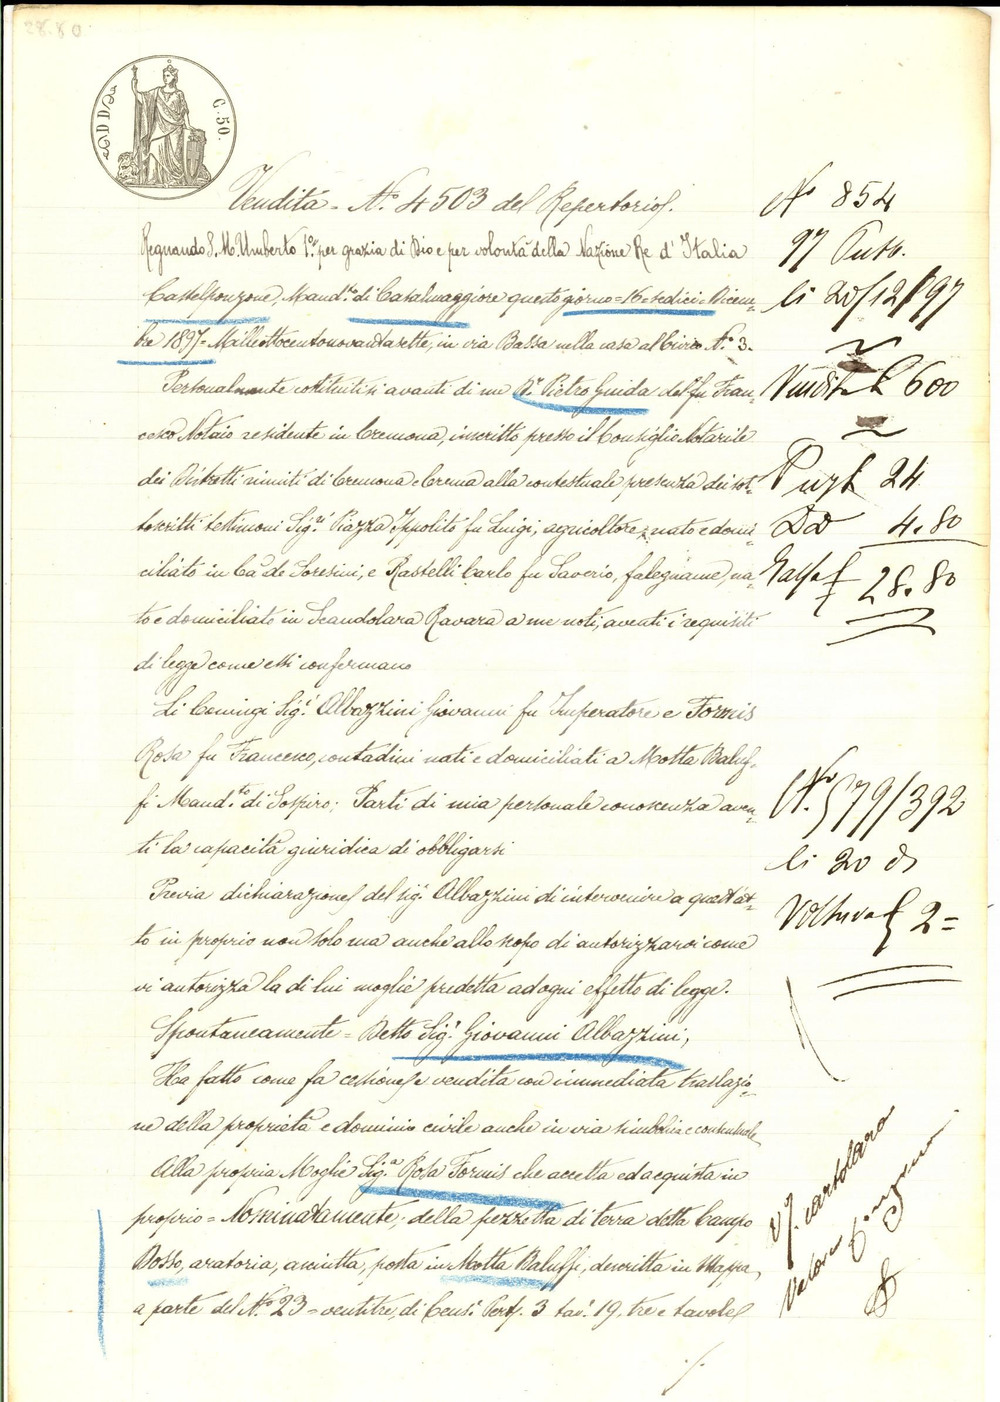 28.80
C. 50.
Vendita = N.° 4503 del Repertorio
Regnando S. M. Umberto 1.° per grazia di Dio e per volontà della Nazione Re d'Italia
Castelponzone, Mand.to di Casalmaggiore questo giorno = 16 = sedici = Dicem-
bre 1897 = Milleottocentonovantasette, in via Bassa nella casa al civico N.° 3.
Personalmente costituitisi avanti di me D.r Pietro Guida del fu Fran-
cesco Notaio residente in Cremona, inscritto presso il Consiglio Notarile
dei Distretti riuniti di Cremona e Crema alla contestuale presenza dei sot-
toscritti testimoni Sig.ri Piazza Ippolito fu Luigi, agricoltore, nato e domi-
ciliato in Ca' de Soresini, e Rastelli Carlo fu Saverio, falegname, na-
to e domiciliato in Scandolara Ravara a me noti, aventi i requisiti
di legge come essi confermano
Li Coniugi Sig.i Albazzini Giovanni fu Imperatore e Formis
Rosa fu Francesco, contadini nati e domiciliati a Motta Baluf-
fi Mand.to di Sospiro; Parti di mia personale conoscenza aven-
ti la capacità giuridica di obbligarsi
Previa dichiarazione del sig.r Albazzini di intervenire a quest'at-
to in proprio non solo ma anche allo scopo di autorizzare come
vi autorizza la di lui moglie predetta ad ogni effetto di legge.
Spontaneamente = Detto Sig.r Giovanni Albazzini,
Ha fatto come fa cessione e vendita con immediata traslazio-
ne della proprietà e dominio civile anche in via simbolica e consensuale
Alla propria Moglie Sig.a Rosa Formis che accetta ed acquista in
proprio = Nominatamente; della pezzetta di terra detta Campo
Dosso, aratoria, asciutta, posta in Motta Baluffi, descritta in Mappa
a parte del N.° 23 = ventitre, di Cens. Pert. 3 tav. 19, tre e tavole
N° 854
97
li 20/12/97
Vendita L 600
24
4.80
Tassa £ 28.80
N.° 579/392
li 20 d°
Voltura £ 2 =